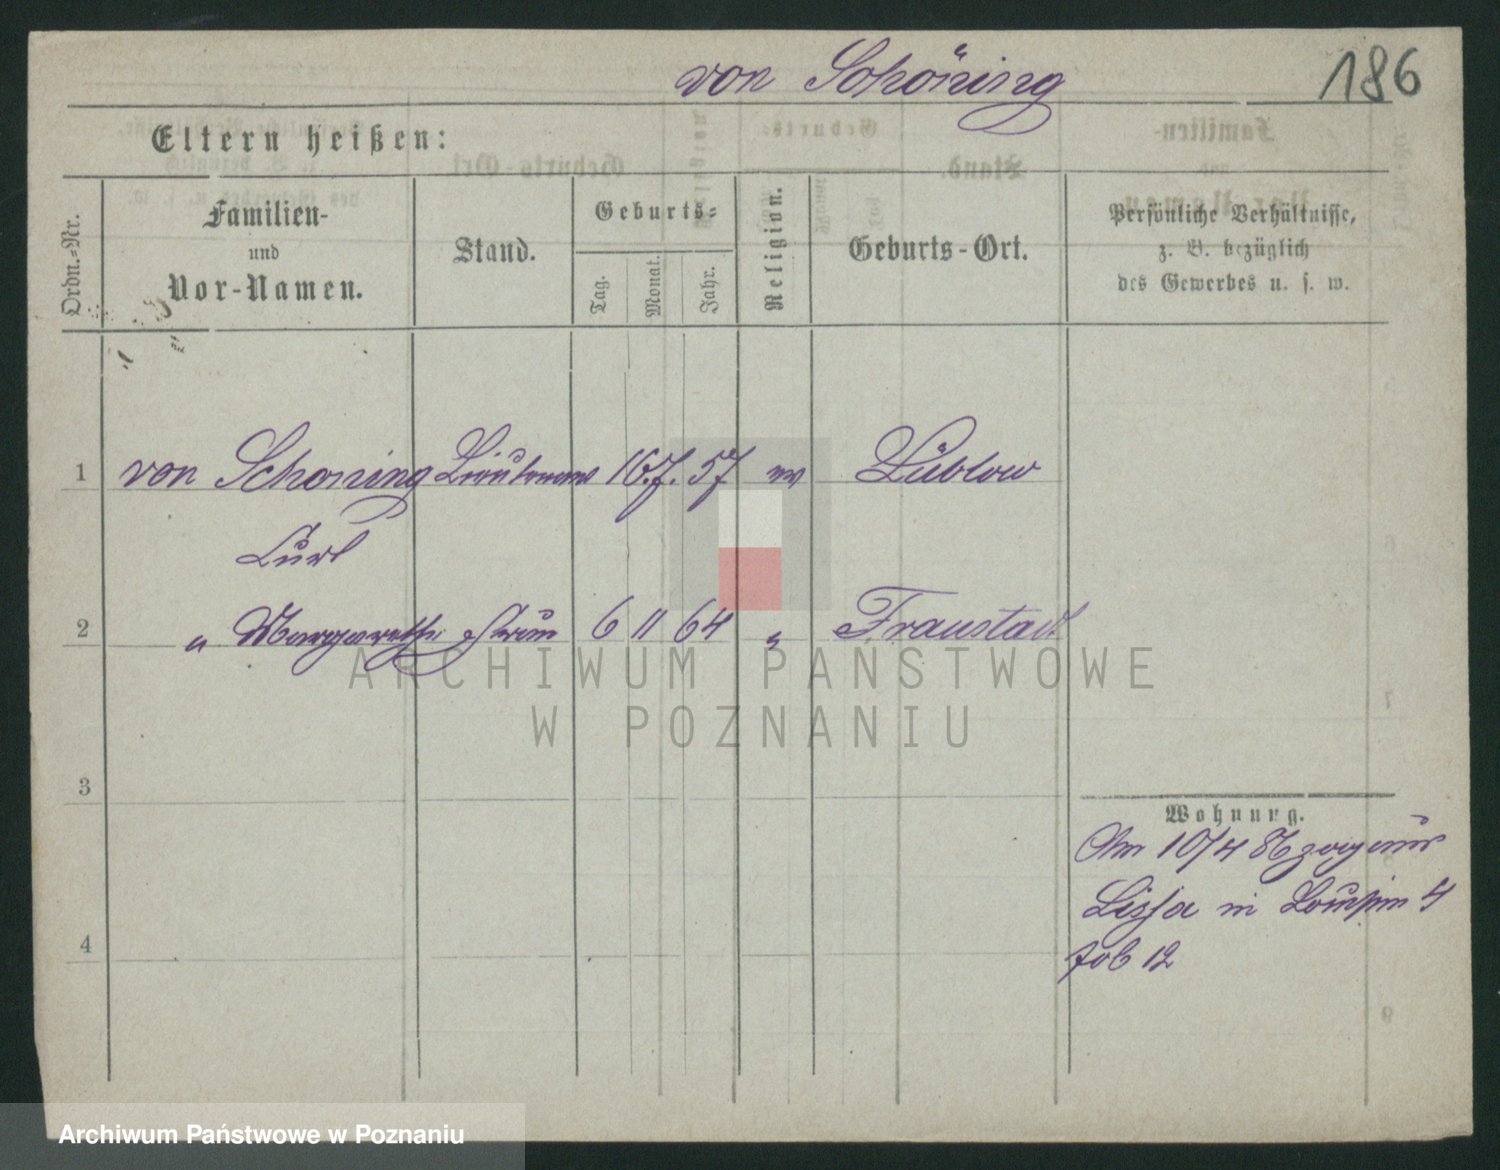 von Schöning
186
Eltern heißen:
Ordn.-Nr.
Familien-
und
Vor-Namen.
Stand.
Geburts-
Tag.
Monat.
Jahr.
Religion.
Geburts-Ort.
Persönliche Verhältnisse,
z. B. bezüglich
des Gewerbes u. s. w.
1 von Schöning Lieutenant 16. 7. 57 Lüblow
Curt
2 " Margarethe Frau 6 11 64 " Fraustadt
ARCHIWUM PAŃSTWOWE
W POZNANIU
3
Wohnung.
Am 10/4 86 zog aus
Lissa in
4
12
Archiwum Państwowe w Poznaniu